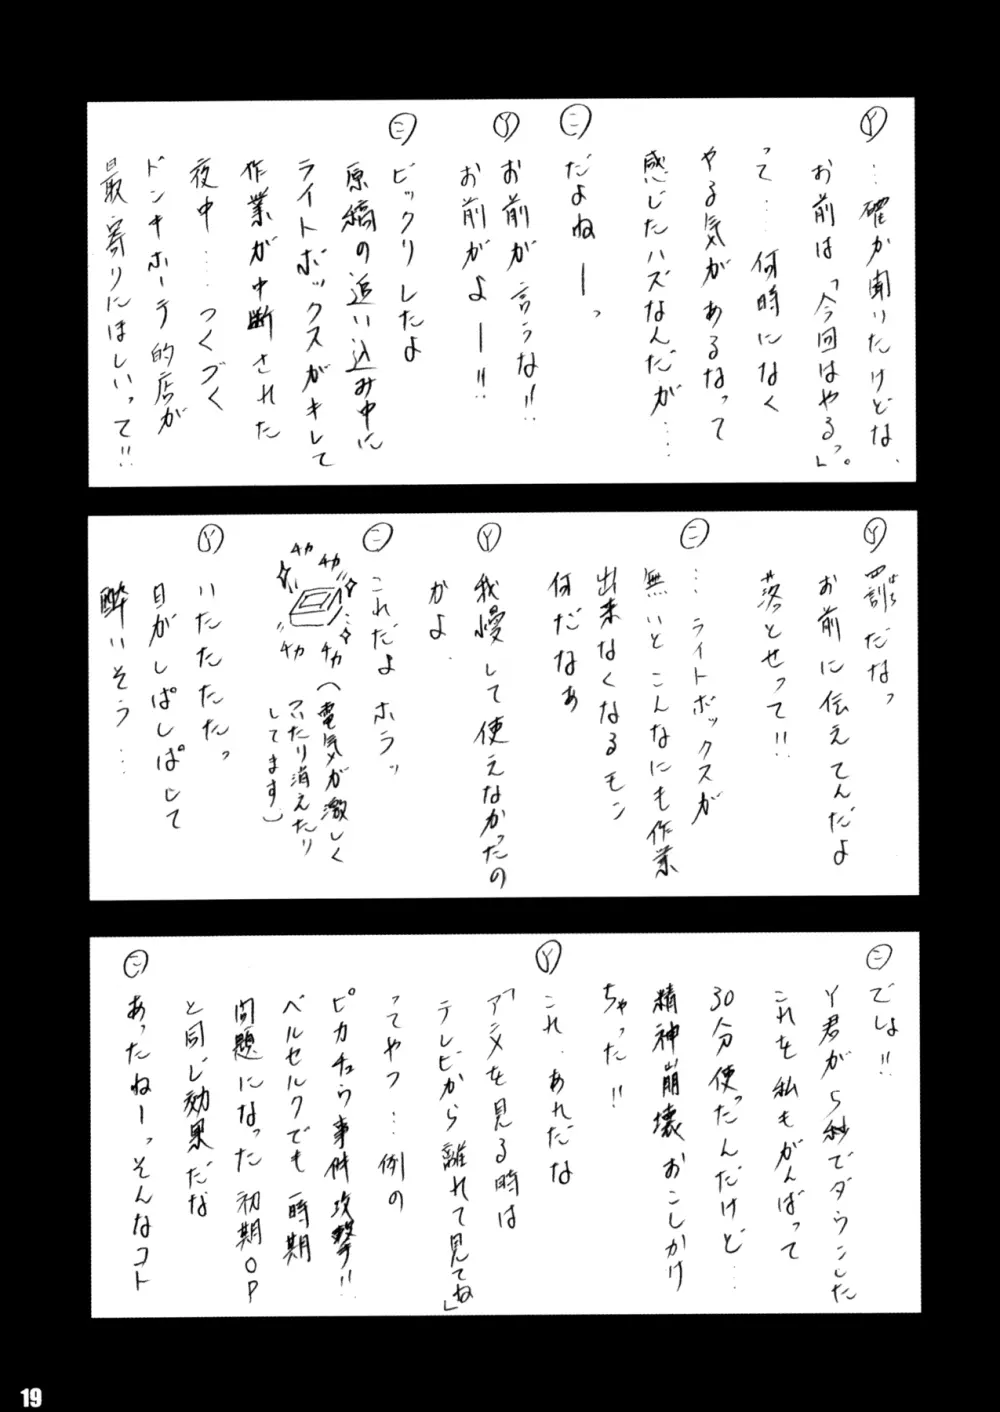 Ⓨ…確か聞いたけどな、
お前は「今回はやるっ」。
って…何時になく
やる気があるなって
感じたハズなんだが…
㊁だよねーっ
Ⓨお前が言うな!!
お前がよー!!
㊁ビックリしたよ
原稿の追い込み中に
ライトボックスがキレて
作業が中断された
夜中…つくづく
ドンキホーテ的店が
最寄りにほしいって!!
Ⓨ罰だなっ
ばち
お前に伝えてんだよ
落とせって!!
㊁…ライトボックスが
無いとこんなにも作業
出来なくなるモン
何だなあ
Ⓨ我慢して使えなかったの
かよ.
㊁これだよホラッ
チカ
チカ
チカ
チカ
(電気が激しく
ついたり消えたり
してます)
Ⓨいたたたたっ
目がしぱしぱして
酔いそう…
㊁でしょ!!
Y君が5秒でダウンした
これを私もがんばって
30分使ったんだけど…
精神崩壊おこしかけ
ちゃった!!
Ⓨこれ、あれだな
「アニメを見る時は
テレビから離れて見てね」
ってやつ…例の
ピカチュウ事件攻撃!!
ベルセルクでも一時期
問題になった初期OP
と同じ効果だな
㊁あったねーっそんなコト
19